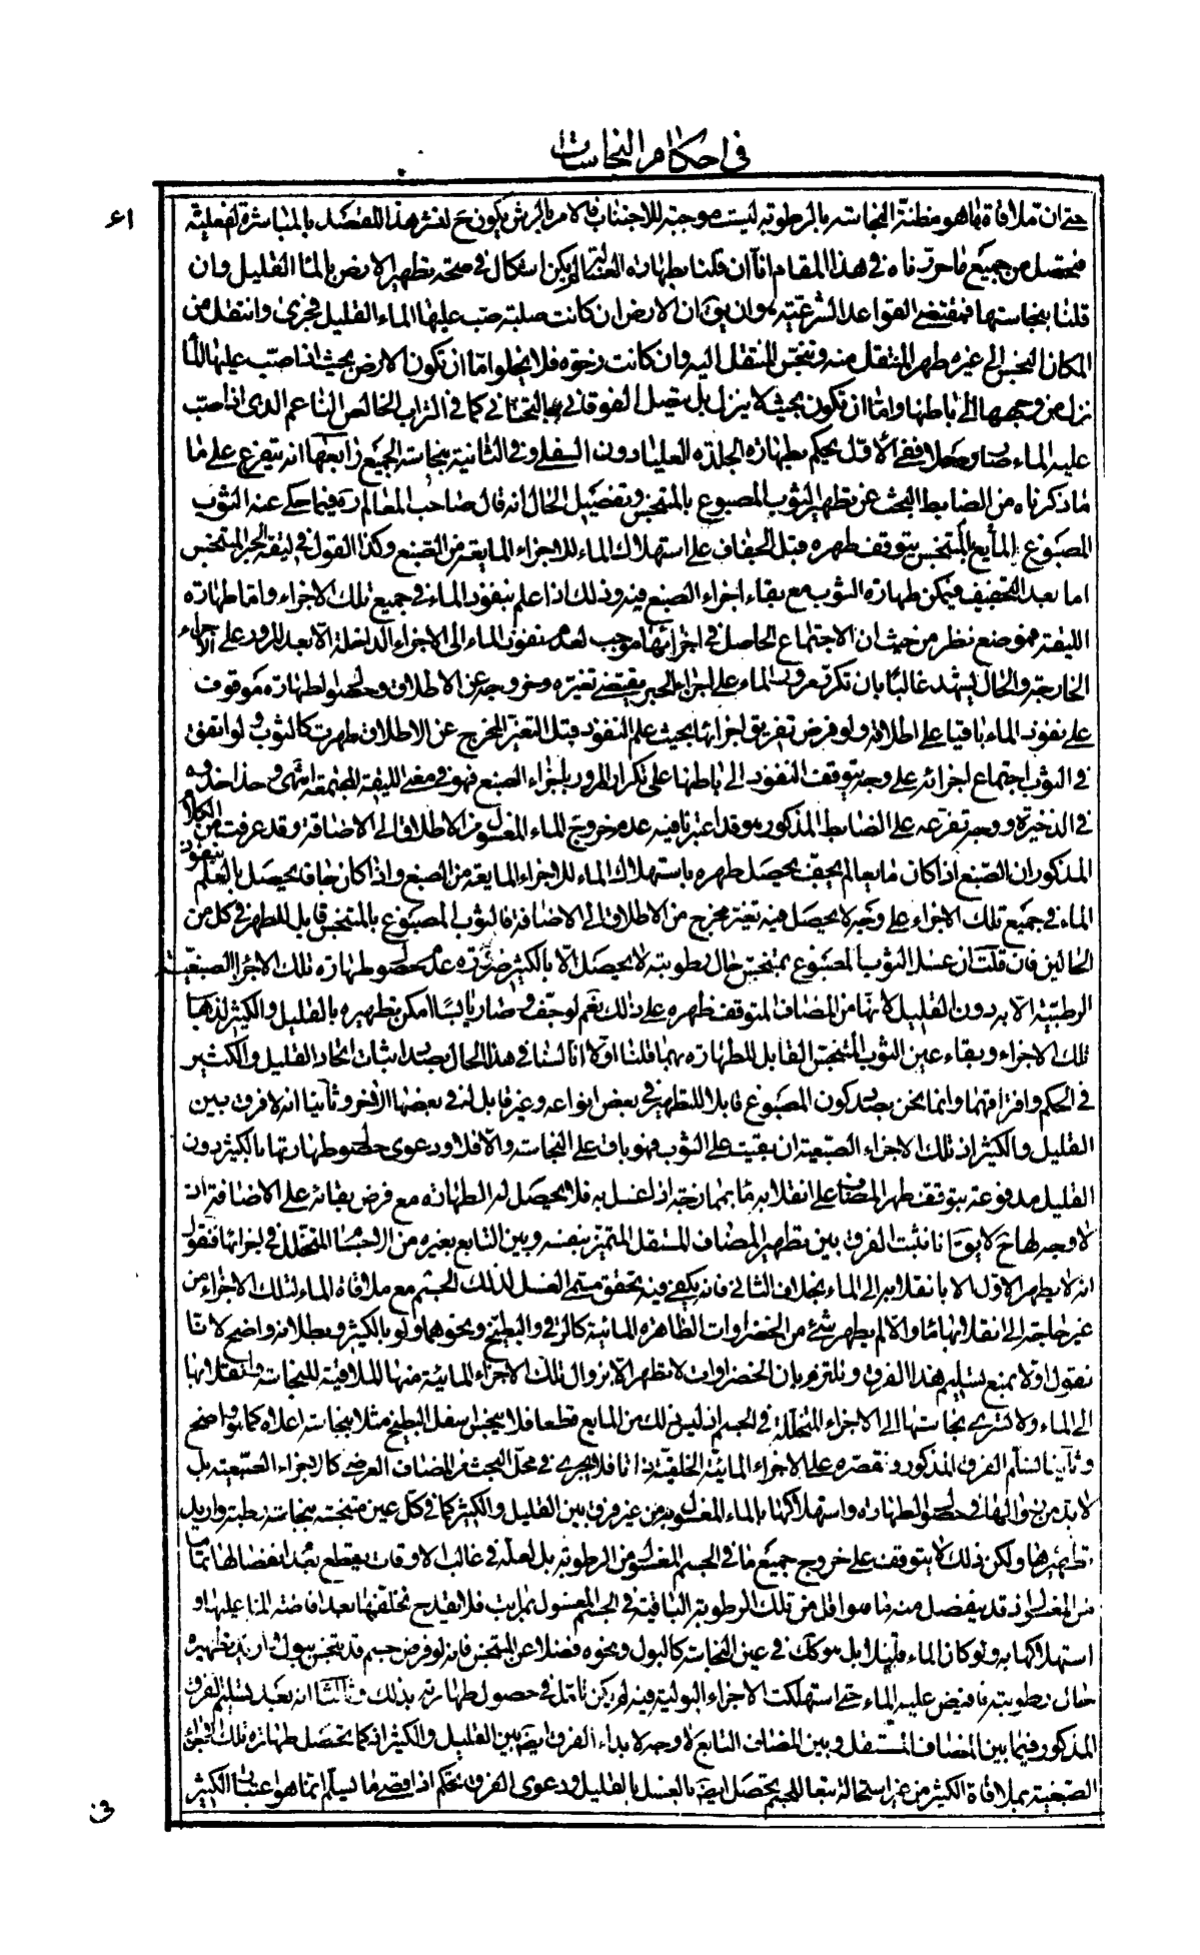 في احكام النجاسات
٦١
حتى ان ملاقاة ما هو مظنة النجاسة بالرطوبة ليست موجبة للاجتناب فالامر بالرش يكون ح لنشر هذا بالمباشرة الفعلية
فتحصل من جميع ما حررناه في هذا المقام انا ان قلنا بطهارة الغسالة لم يكن اشكال في صحة تطهير الارض بالماء القليل وان
قلنا بنجاستها فمقتضى القواعد الشرعية هو ان يق ان الارض ان كانت صلبة صب عليها الماء القليل فيجرى وانتقل من
المكان النجس الى غيره طهر المنتقل منه وتنجس المنتقل اليه وان كانت رخوة فلا يخلو اما ان تكون الارض بحيث اذا صب عليها الماء
نزل من وجهها الى باطنها واما ان تكون بحيث لا ينزل بل يتصل الفوقاني بالتحتاني كما في التراب الخالص الناعم الذى اذا صب
عليه الماء صار وحلا ففي الاول يحكم بطهارة الجلدة العليا دون السفلى وفي الثانية بنجاسة الجميع رابعها انه يتفرع على ما
ما ذكرناه من الضابط البحث عن تطهير الثوب المصبوغ بالمتنجس وتفصيل الحال انه قال صاحب المعالم ره فيما حكى عنه الثوب
المصبوغ بالمايع المتنجس يتوقف طهره قبل الجفاف على استهلاك الماء للاجزاء المايعة من الصبغ وكذا القول في ليقة الحبر المتنجس
اما بعد التجفيف فيمكن طهارة الثوب مع بقاء اجزاء الصبغ فيه وذلك اذا علم نفوذ الماء في جميع تلك الاجزاء واما طهارة
الليقة فموضع نظر من حيث ان الاجتماع الحاصل في اجزائها موجب لعدم نفوذ الماء الى الاجزاء الداخلة الا بعد المرور على الاجزاء
الخارجة والحال يشهد غالبا بان تكرر مرور الماء على اجزاء الحبر يقتضى تغيره وخروجه عن الاطلاق وحصول الطهارة موقوف
على نفوذ الماء باقيا على اطلاقه ولو فرض تفريق اجزائها بحيث علم النفوذ قبل التغير المخرج عن الاطلاق طهرت كالثوب ولو اتفق
في الثوب اجتماع اجزائه على وجه يتوقف النفوذ الى باطنها على تكرار المرور باجزاء الصبغ فهو في معنى الليقة المجتمعة انتهى وحذا حذوه
في الذخيرة ووجه تفرعه على الضابط المذكور هو قد اعتبرنا فيه عدم خروج الماء المغسول به من الاطلاق الى الاضافة وقد عرفت من الكلام
المذكور ان الصبغ اذا كان مايعا لم يجف يحصل طهره باستهلاك الماء للاجزاء المايعة من الصبغ واذا كان جافا يحصل بالعلم بنفوذ
الماء في جميع تلك الاجزاء على وجه لا يحصل فيه تغير مخرج من الاطلاق الى الاضافة فالثوب المصبوغ بالمتنجس قابل للطهر في كل من
الحالين فان قلت ان غسل الثوب المصبوغ بمتنجس حال رطوبته لا يحصل الا بالكثير ضرورة عدم حصول طهارة تلك الاجزاء الصبغية
الرطبة الا به دون القليل لانها من المضاف المتوقف طهره على ذلك نعم لو جف وصار يابسا امكن تطهيره بالقليل والكثير لذهاب
تلك الاجزاء وبقاء عين الثوب المتنجس القابل للطهارة بهما قلنا اولا انا لسنا في هذا الحال بصدد اثبات اتحاد القليل والكثير
في الحكم وافتراقهما وانما نحن بصدد كون المصبوغ قابلا للتطهير في بعض انواعه وغير قابل له في بعضها الاخر وثانيا انه لا فرق بين
القليل والكثير اذ تلك الاجزاء الصبغية ان بقيت على الثوب فهو باق على النجاسة والا فلا ودعوى حصول طهارتها بالكثير دون
القليل مدفوعة بتوقف طهر المضاف على انقلابه ماء فلا يحصل له الطهارة مع فرض بقائه على الاضافة اذ
لا وجه لها ح لا يق انا نثبت الفرق بين تطهير المضاف المستقل المتميز بنفسه وبين التابع بغيره من الاجسام المتخلل في اجزائها فنقول
انه لا يطهر الاول الا بانقلابه الى الماء بخلاف الثاني فانه يكفى فيه تحقق مسمى الغسل لذلك الجسم مع ملاقاة الماء لتلك الاجزاء من
غير حاجة الى انقلابها ماء والا لم يطهر شئ من الخضراوات الظاهرة المائية كالرقى والبطيخ ونحوهما ولو بالكثير وبطلانه واضح لانا
نقول اولا نمنع تسليم هذا الفرق ونلتزم بان الخضراوات لا تطهر الا بزوال تلك الاجزاء المائية منها الملاقية للنجاسة وانقلابها
الى الماء ولا تسرى نجاستها الى الاجزاء المتخللة في الجسم اذ ليس ذلك من المايع قطعا فلا ينجس سفل البطيخ مثلا بنجاسة اعلاه كما هو واضح
وثانيا نسلم الفرق المذكور ونقصره على الاجزاء المائية الخلقية فلا يجرى في محل البحث من المضاف العرضى كالاجزاء الصبغية بل
لا بد من زوالها في حصول الطهارة واستهلاكها بالماء المغسول به من غير فرق بين القليل والكثير كما في كل عين متنجسة بنجاسة رطبة واريد
تطهيرها ولكن ذلك لا يتوقف على خروج جميع ما في الجسم المغسول من الرطوبة بل لعله في غالب الاوقات يقطع بعدم انفصالها تماما
من المغسول اذ قد ينفصل منه ما هو اقل من تلك الرطوبة الباقية في الجسم المغسول بمراتب فلا يقدح تخلفها بعد افاضة الماء عليها و
استهلاكها به ولو كان الماء قليلا بل هو كك في عين النجاسة كالبول ونحوه فضلا عن المتنجس فانه لو فرض جسم قد تنجس ببول واريد تطهيره
حال رطوبته فافيض عليه الماء حتى استهلكت الاجزاء البولية فيه لم يكن تامل في حصول طهارته بذلك وثالثا انه بعد تسليم الفرق
المذكور فيما بين المضاف المستقل وبين المضاف التابع لا وجه لابداء الفرق ايضا بين القليل والكثير اذ كما تحصل طهارة تلك الاجزاء
الصبغية بملاقاة الكثير من غير استحالة تبعا للجسم يحصل ايضا بالغسل بالقليل ودعوى الفرق تحكم اذ اقصى ما يسلم انما هو اعتبار الكثير
في